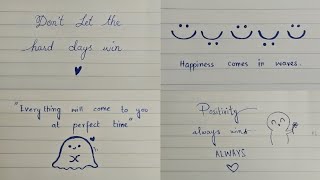 Don't Let the
hard days win
Happiness comes in waves.
"Everything will come to you
at perfect time"
Positivity
always wins
ALWAYS